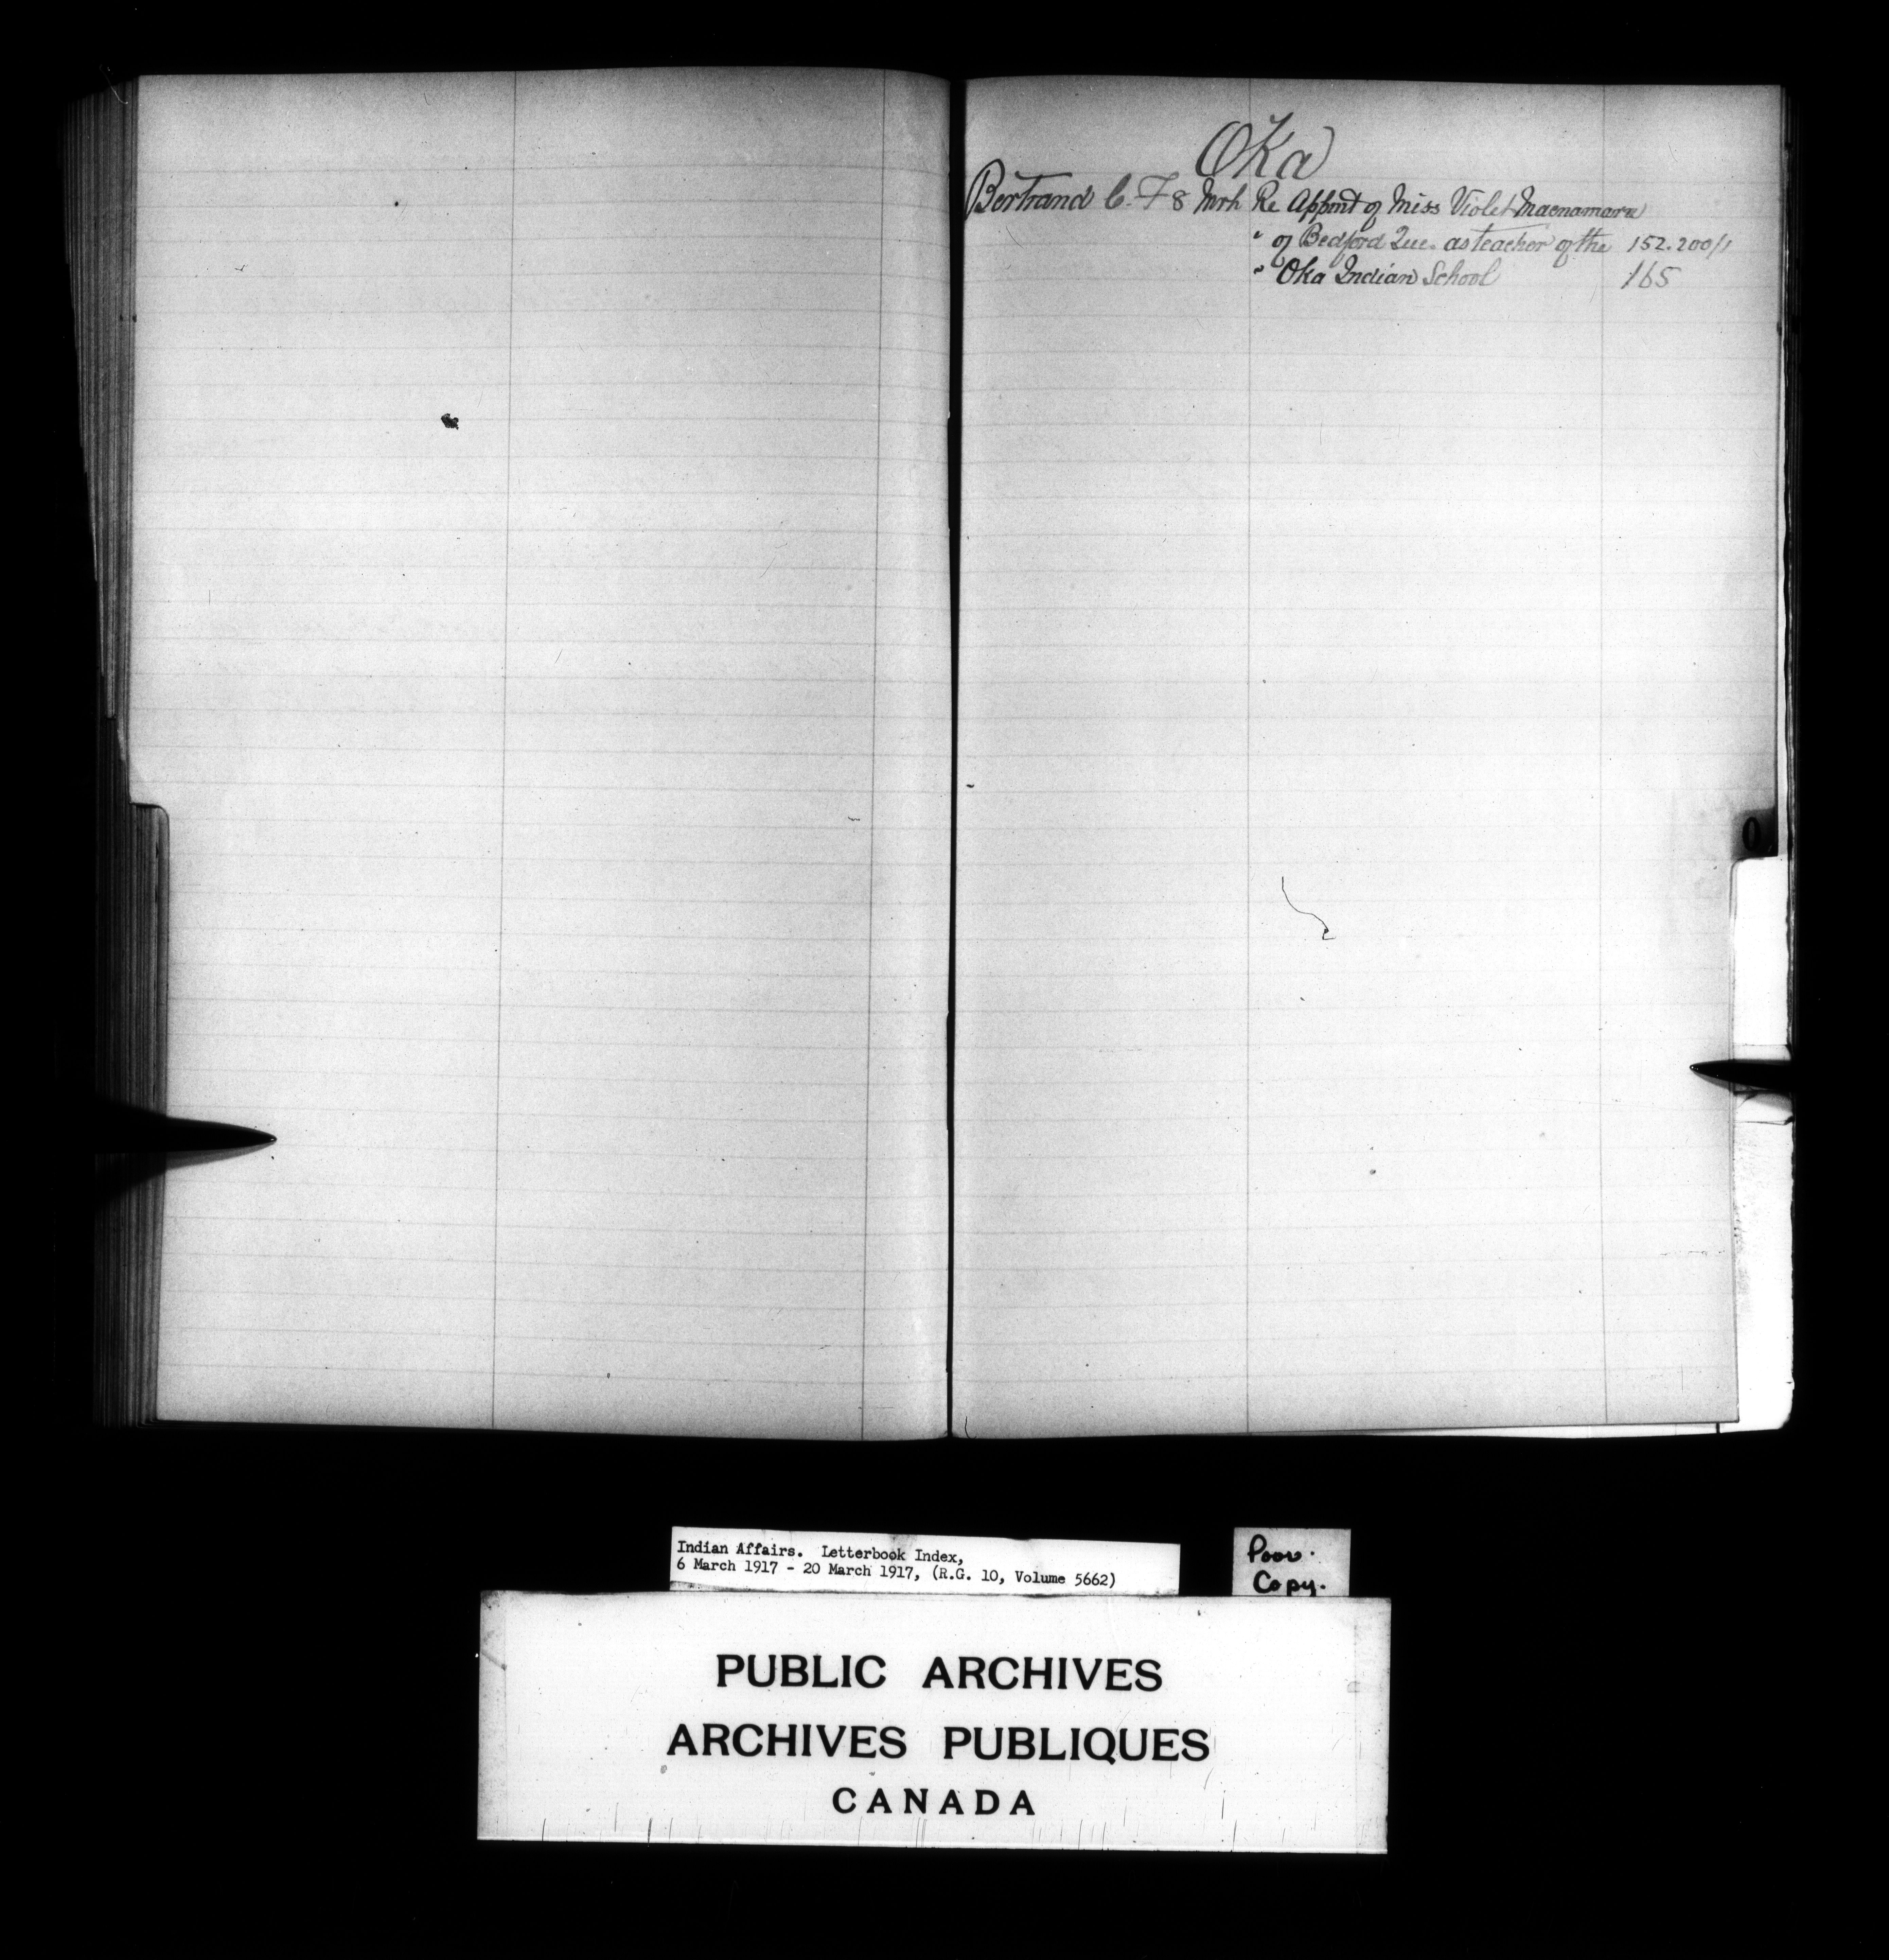 Oka
Bertrand C. F 8 Mrh Re Appmt of Miss Violet Macnamara
" of Bedford Que. as teacher of the 152.200/1
" Oka Indian School 165
O
Indian Affairs. Letterbook Index,
6 March 1917 - 20 March 1917, (R.G. 10, Volume 5662)
Poor.
Copy.
PUBLIC ARCHIVES
ARCHIVES PUBLIQUES
CANADA